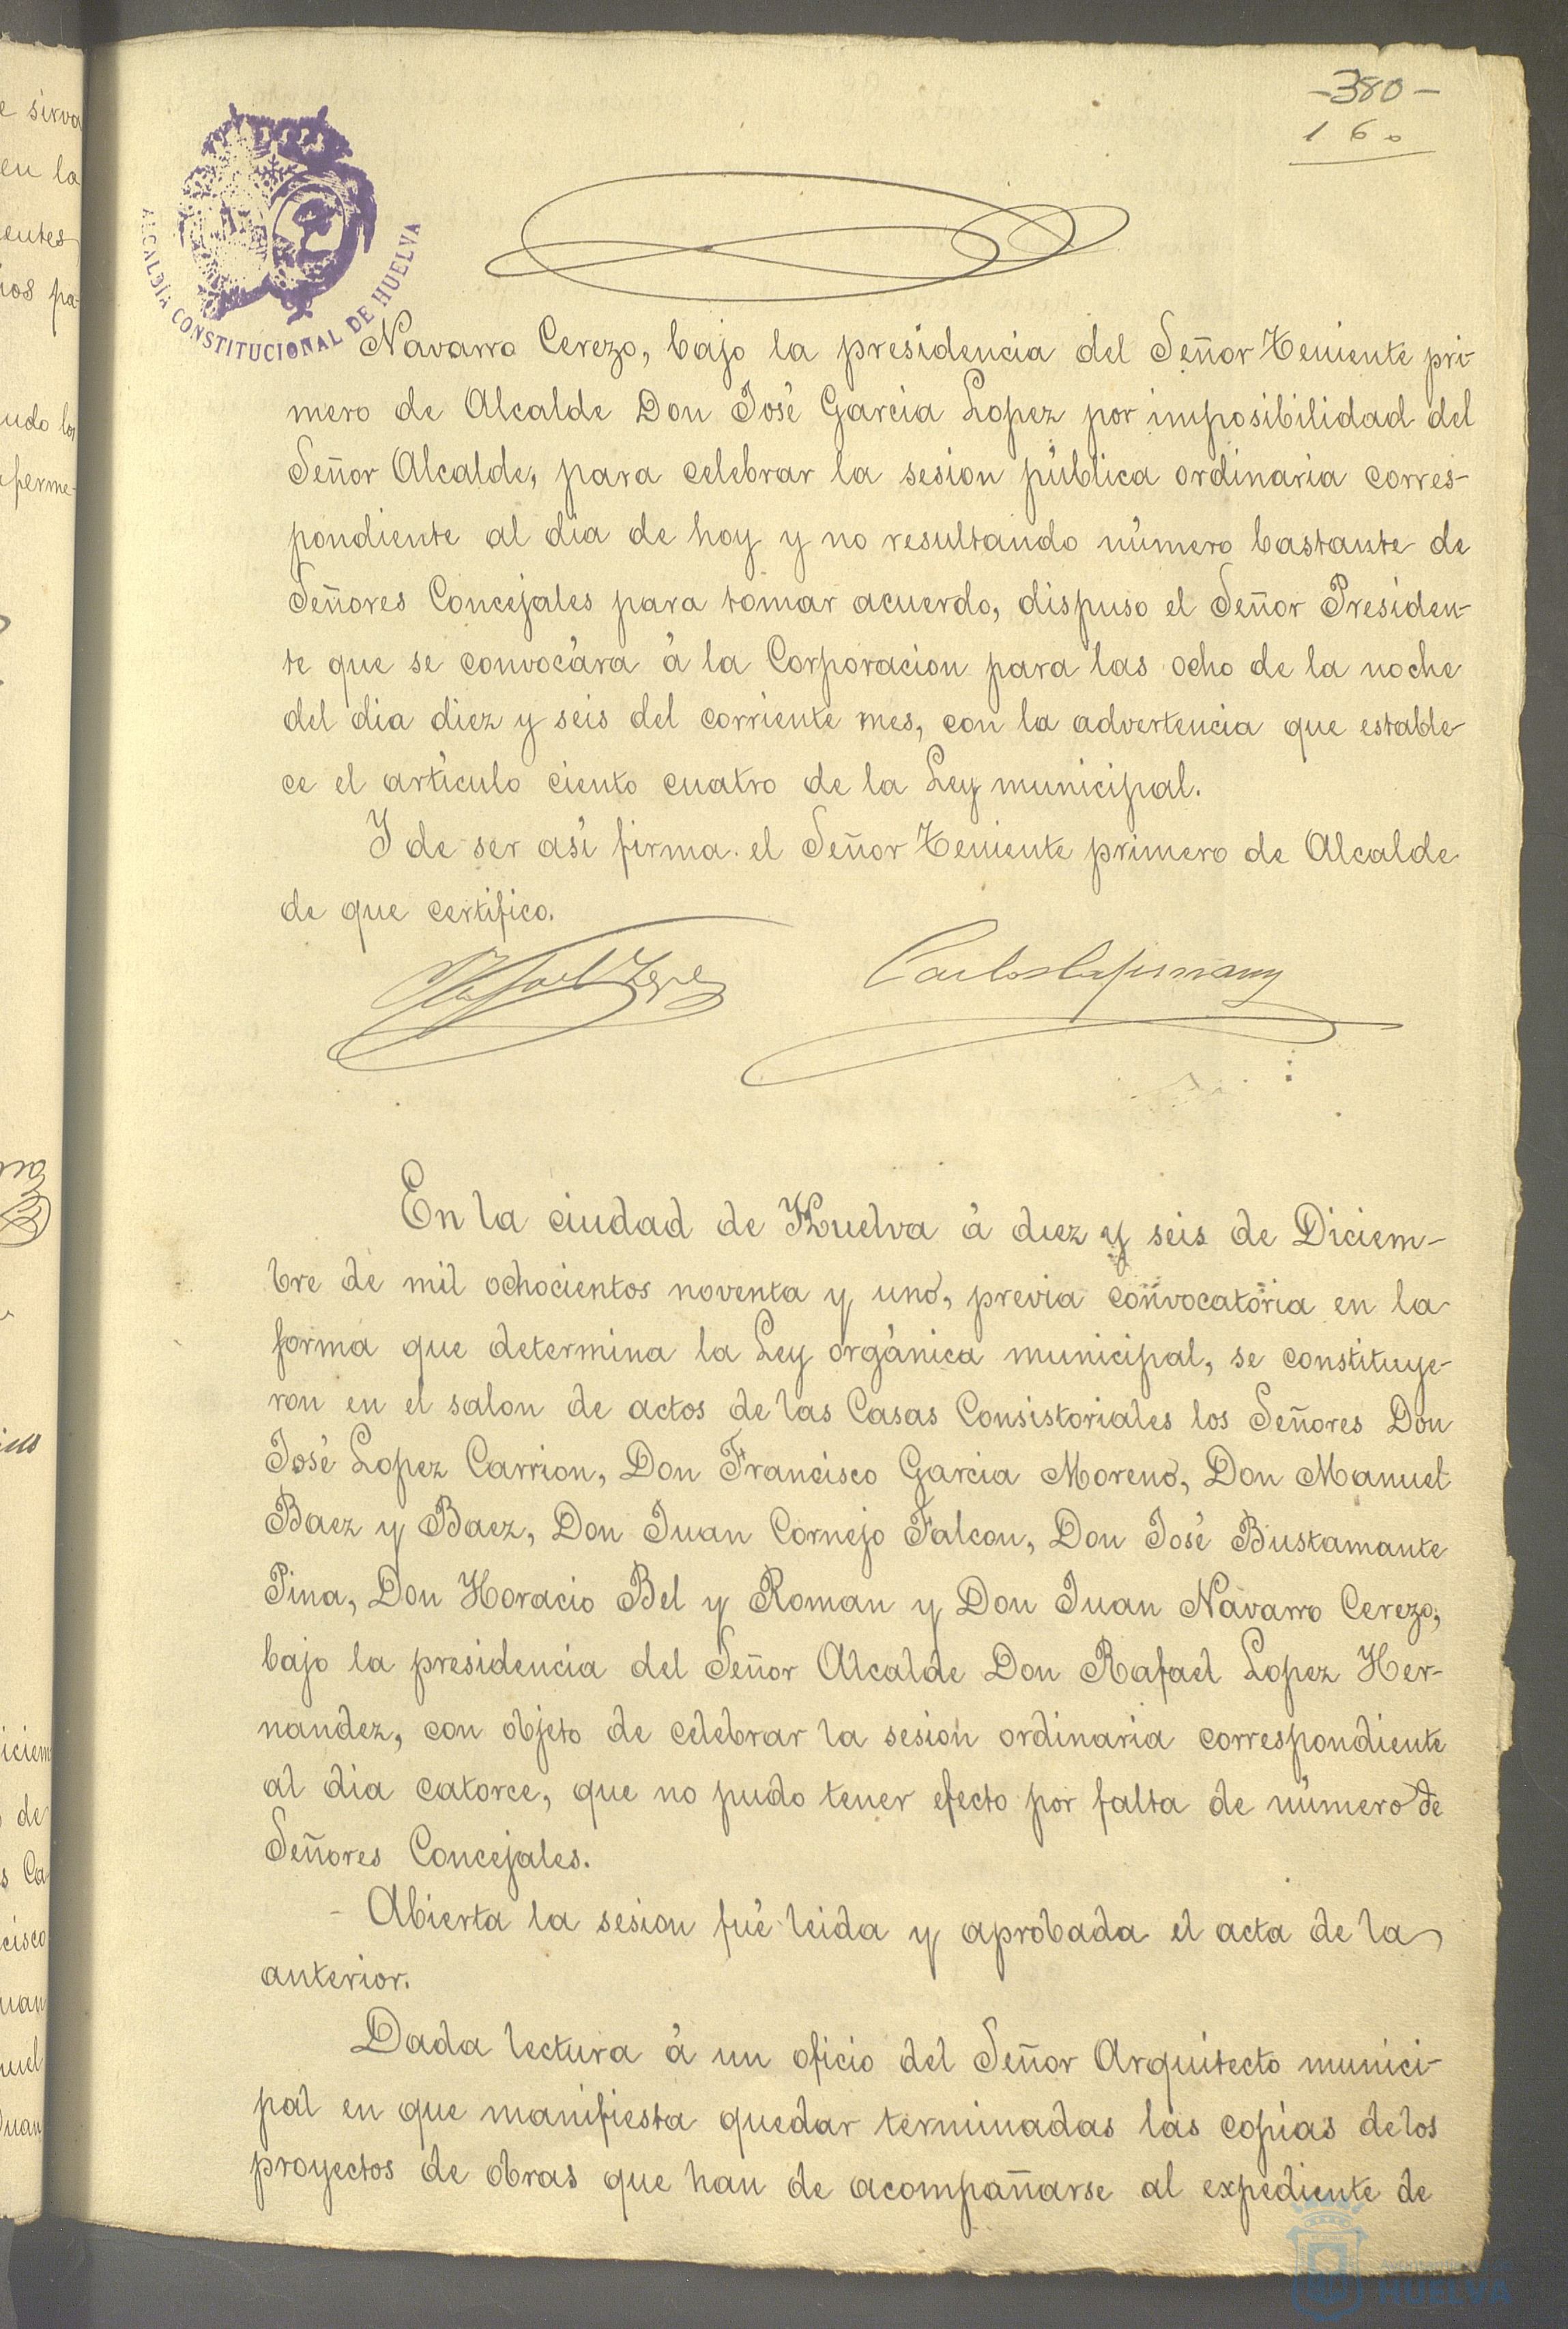 -380-
160
ALCALDÍA CONSTITUCIONAL DE HUELVA
Navarro Cerezo, bajo la presidencia del Señor Teniente pri-
mero de Alcalde Don José Garcia Lopez por imposibilidad del
Señor Alcalde, para celebrar la sesion pública ordinaria corres-
pondiente al dia de hoy y no resultando número bastante de
Señores Concejales para tomar acuerdo, dispuso el Señor Presiden-
te que se convocára á la Corporacion para las ocho de la noche
del dia diez y seis del corriente mes, con la advertencia que estable-
ce el artículo ciento cuatro de la Ley municipal.
Y de ser así firma el Señor Teniente primero de Alcalde
de que certifico.
En la ciudad de Huelva á diez y seis de Diciem-
bre de mil ochocientos noventa y uno, previa convocatoria en la
forma que determina la Ley orgánica municipal, se constituye-
ron en el salon de actos de las Casas Consistoriales los Señores Don
José Lopez Carrion, Don Francisco Garcia Moreno, Don Manuel
Baez y Baez, Don Juan Cornejo Falcon, Don José Bustamante
Pina, Don Horacio Bel y Roman y Don Juan Navarro Cerezo,
bajo la presidencia del Señor Alcalde Don Rafael Lopez Her-
nandez, con objeto de celebrar la sesion ordinaria correspondiente
al dia catorce, que no pudo tener efecto por falta de número de
Señores Concejales.
Abierta la sesion fué leida y aprobada el acta de la
anterior.
Dada lectura á un oficio del Señor Arquitecto munici-
pal en que manifiesta quedar terminadas las copias de los
proyectos de obras que han de acompañarse al expediente de
HUELVA